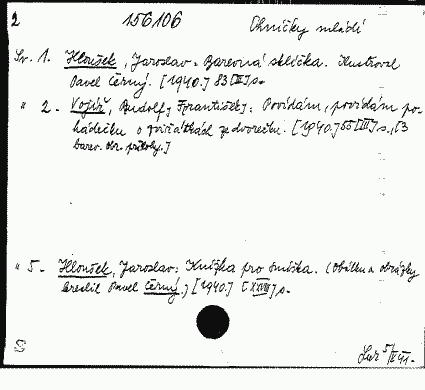 2 156106 Ohníčky mládí
Sv. 1. Hloušek, Jaroslav: Barevná sklíčka. Ilustroval
Pavel Černý. [1940.] 83 [III] s.
" 2. Vojíř, Rudolf, František: Povídám, povídám po-
hádečku o zvířátkách ze dvorečku. [1940.] 55 [III] s., [3
barev. obr. přílohy.]
" 5. Hloušek, Jaroslav: Knížka pro Smíška. (Obálku a obrázky
kreslil Pavel Černý.) [1940.] [XXVIII] s.